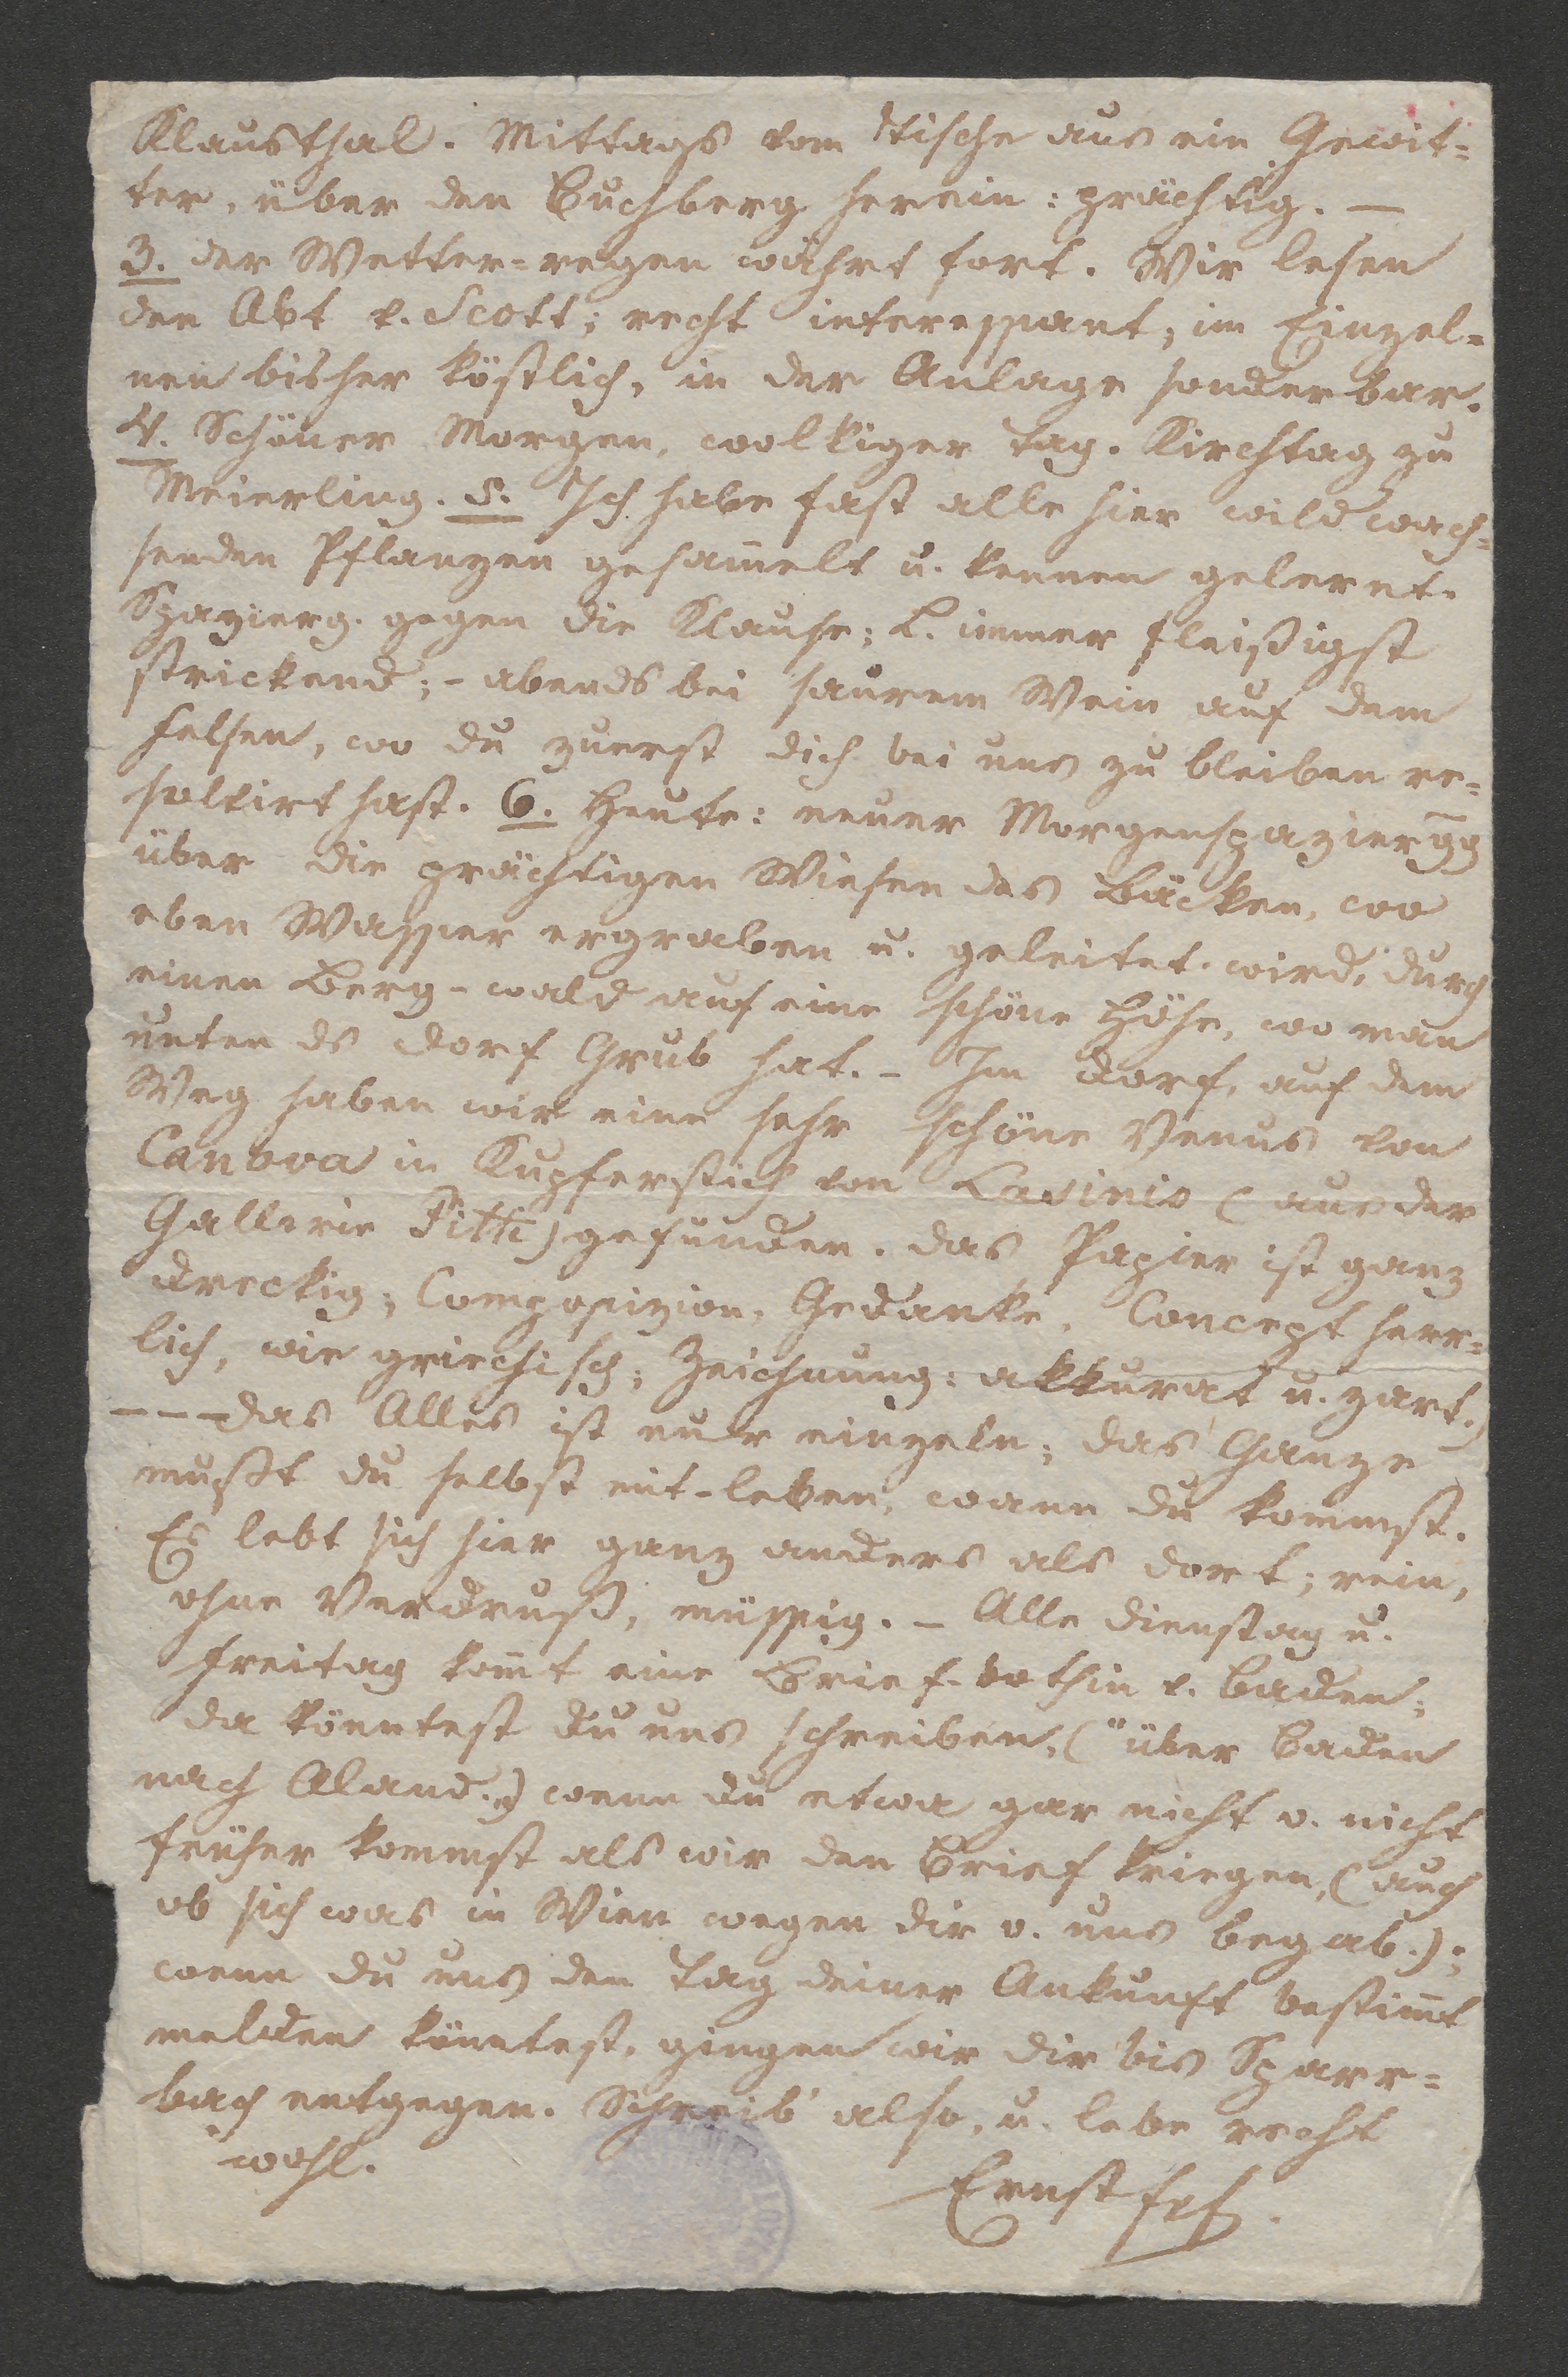 Klausthal. Mittags vom Tische aus ein Gewit=
ter, über den Buchberg herein: prächtig. —
3. der Wetter=regen währt fort. Wir lesen
den Abt v. Scott; recht interessant, im Einzel=
nen bisher köstlich, in der Anlage sonderbar.
4. Schöner Morgen, wolkiger Tag. Kirchtag zu
Meierling. 5. Ich habe fast alle hier wild wach=
senden Pflanzen gesam̅elt u. kennen gelernt.
Spazierg. gegen die Klause; L. immer fleißigst
strickend; - abends bei saurem Wein auf dem
Felsen, wo du zuerst dich bei uns zu bleiben re=
solvirt hast. 6. Heute: neuer Morgenspaziergg
über die prächtigen Wiesen des Bäcken, wo
eben Wasser ergraben u. geleitet wird, durch
einen Berg-wald auf eine schöne Höhe, wo man
unten ds Dorf Grub hat. - Im Dorf, auf dem
Weg haben wir eine sehr schöne Venus von
Canova in Kupferstich von Lasinio (aus der
Gallerie Pitti) gefunden. das Papier ist ganz
dreckig; Composizion, Gedanke, Concept herr=
lich, wie griechisch; Zeichnung: akkurat u. zart.)
--- das Alles ist nur einzeln; das Ganze
mußt du selbst mit-leben, wann du kommst.
Es lebt sich hier ganz anders als dort; rein,
ohne Verdruß, müssig. - Alle Dienstag u.
Freitag kom̅t eine Brief-bothin v. Baden;
da könntest du uns schreiben, ("über Baden
nach Aland.") wenn du etwa gar nicht o. nicht
früher kommst als wir den Brief kriegen, (auch
ob sich was in Wien wegen dir o. uns begab.);
wenn du uns den Tag deiner Ankunft bestim̅t
melden könntest, gingen wir dir bis Sparr=
bach entgegen. Schreib' also, u. lebe recht
wohl.
Ernst